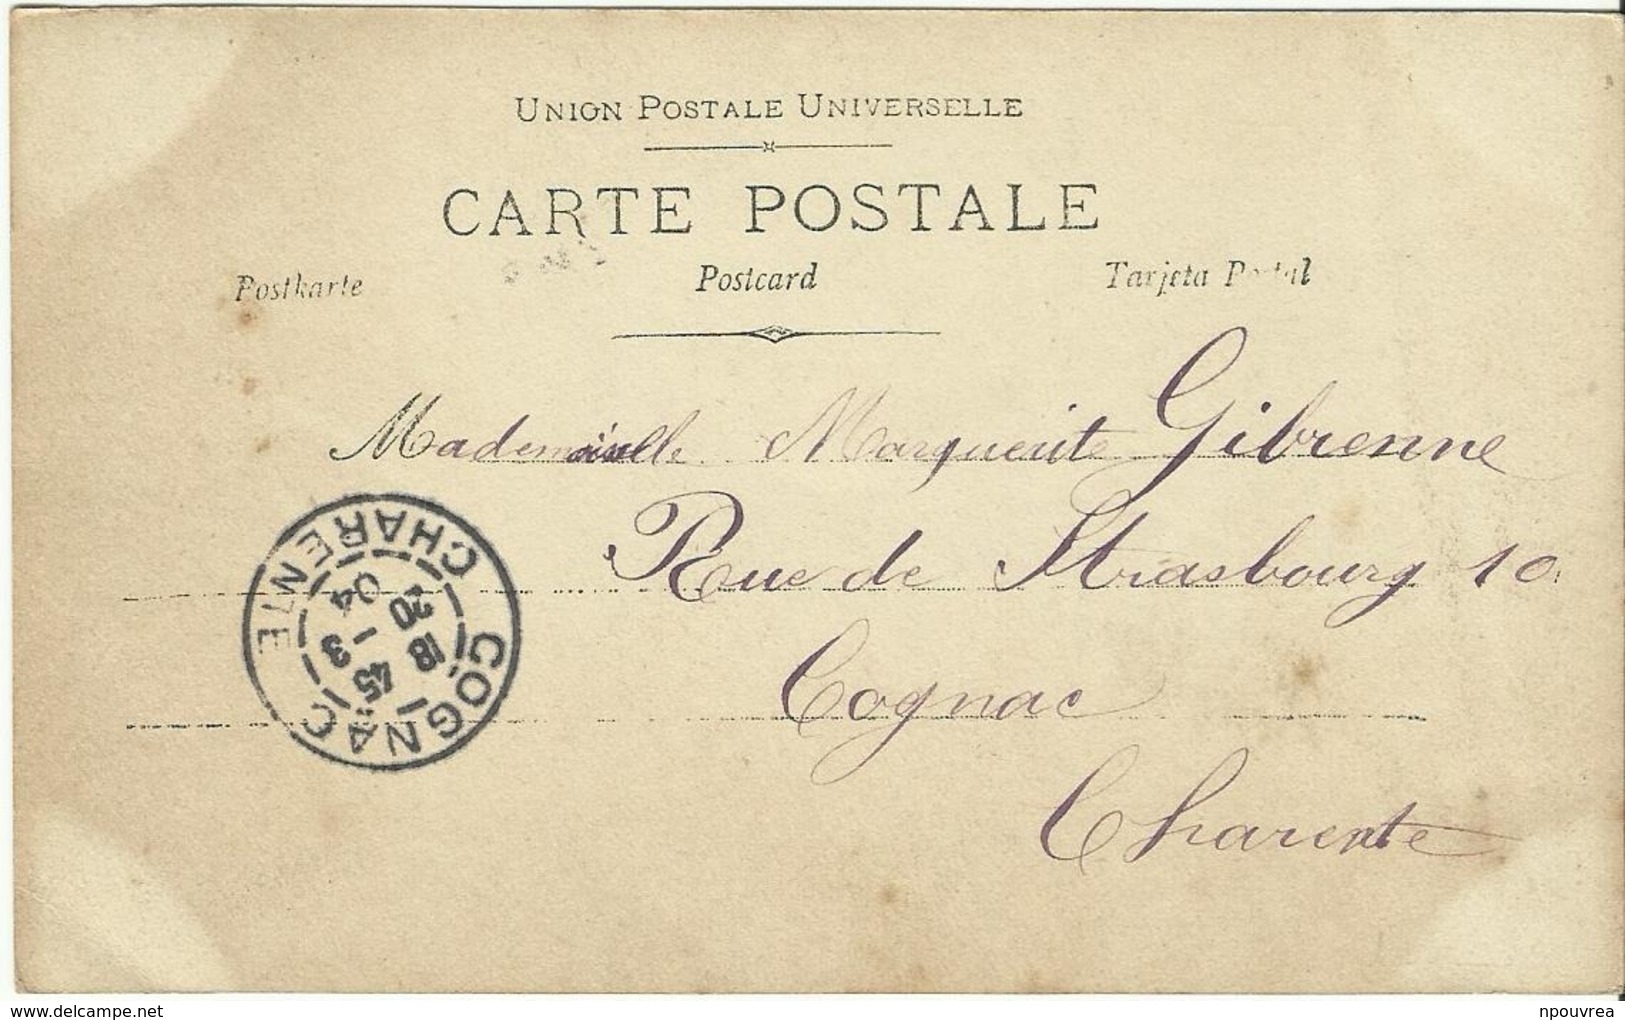 UNION POSTALE UNIVERSELLE
CARTE POSTALE
Postkarte Postcard Tarjeta Postal
Mademoiselle Marguerite Gibrenne
Rue de Strasbourg 10
Cognac
Charente
COGNAC
CHARENTE
18 45
20 - 3
04
www.delcampe.net
npouvrea